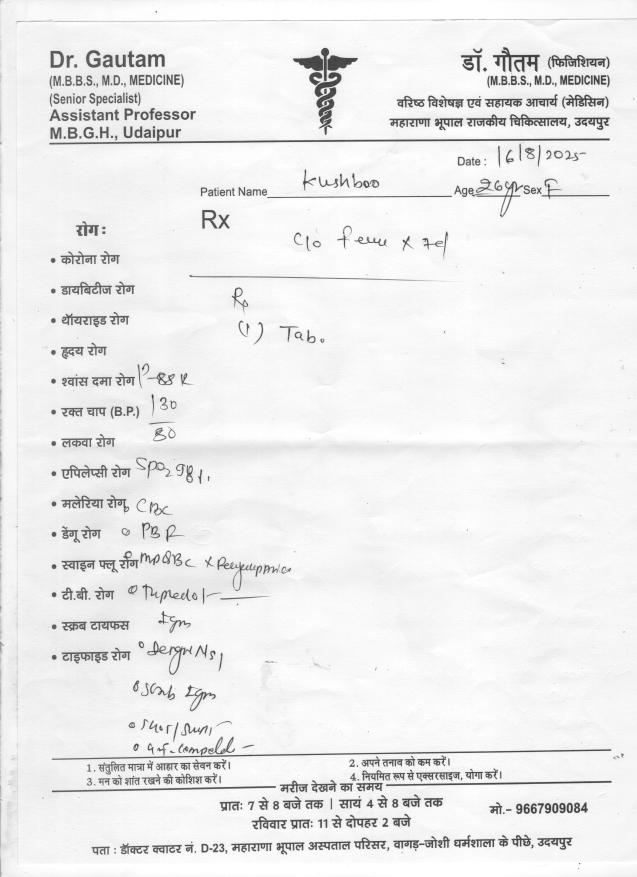 Dr. Gautam
(M.B.B.S., M.D., MEDICINE)
(Senior Specialist)
Assistant Professor
M.B.G.H., Udaipur
डॉ. गौतम (फिजिशियन)
(M.B.B.S., M.D., MEDICINE)
वरिष्ठ विशेषज्ञ एवं सहायक आचार्य (मेडिसिन)
महाराणा भूपाल राजकीय चिकित्सालय, उदयपुर
Date : 16/8/2025
Patient Name Kushboo Age 26yr Sex F
Rx
c/o fever x 7d
रोग :
• कोरोना रोग
• डायबिटीज रोग
• थॉयराइड रोग
(1) Tab.
• हृदय रोग
• श्वांस दमा रोग P-88
• रक्त चाप (B.P.) 130/80
• लकवा रोग
• एपिलेप्सी रोग SpO2 98%
• मलेरिया रोग CBC
• डेंगू रोग PBF
• स्वाइन फ्लू रोग MPQBC x
• टी.बी. रोग
• स्क्रब टायफस IgM
• टाइफाइड रोग Dengue NS1
Scrub IgM
1. संतुलित मात्रा में आहार का सेवन करें। 2. अपने तनाव को कम करें।
3. मन को शांत रखने की कोशिश करें। 4. नियमित रूप से एक्सरसाइज, योगा करें।
मरीज देखने का समय
प्रातः 7 से 8 बजे तक | सायं 4 से 8 बजे तक
रविवार प्रातः 11 से दोपहर 2 बजे
मो.- 9667909084
पता : डॉक्टर क्वाटर नं. D-23, महाराणा भूपाल अस्पताल परिसर, वागड़-जोशी धर्मशाला के पीछे, उदयपुर